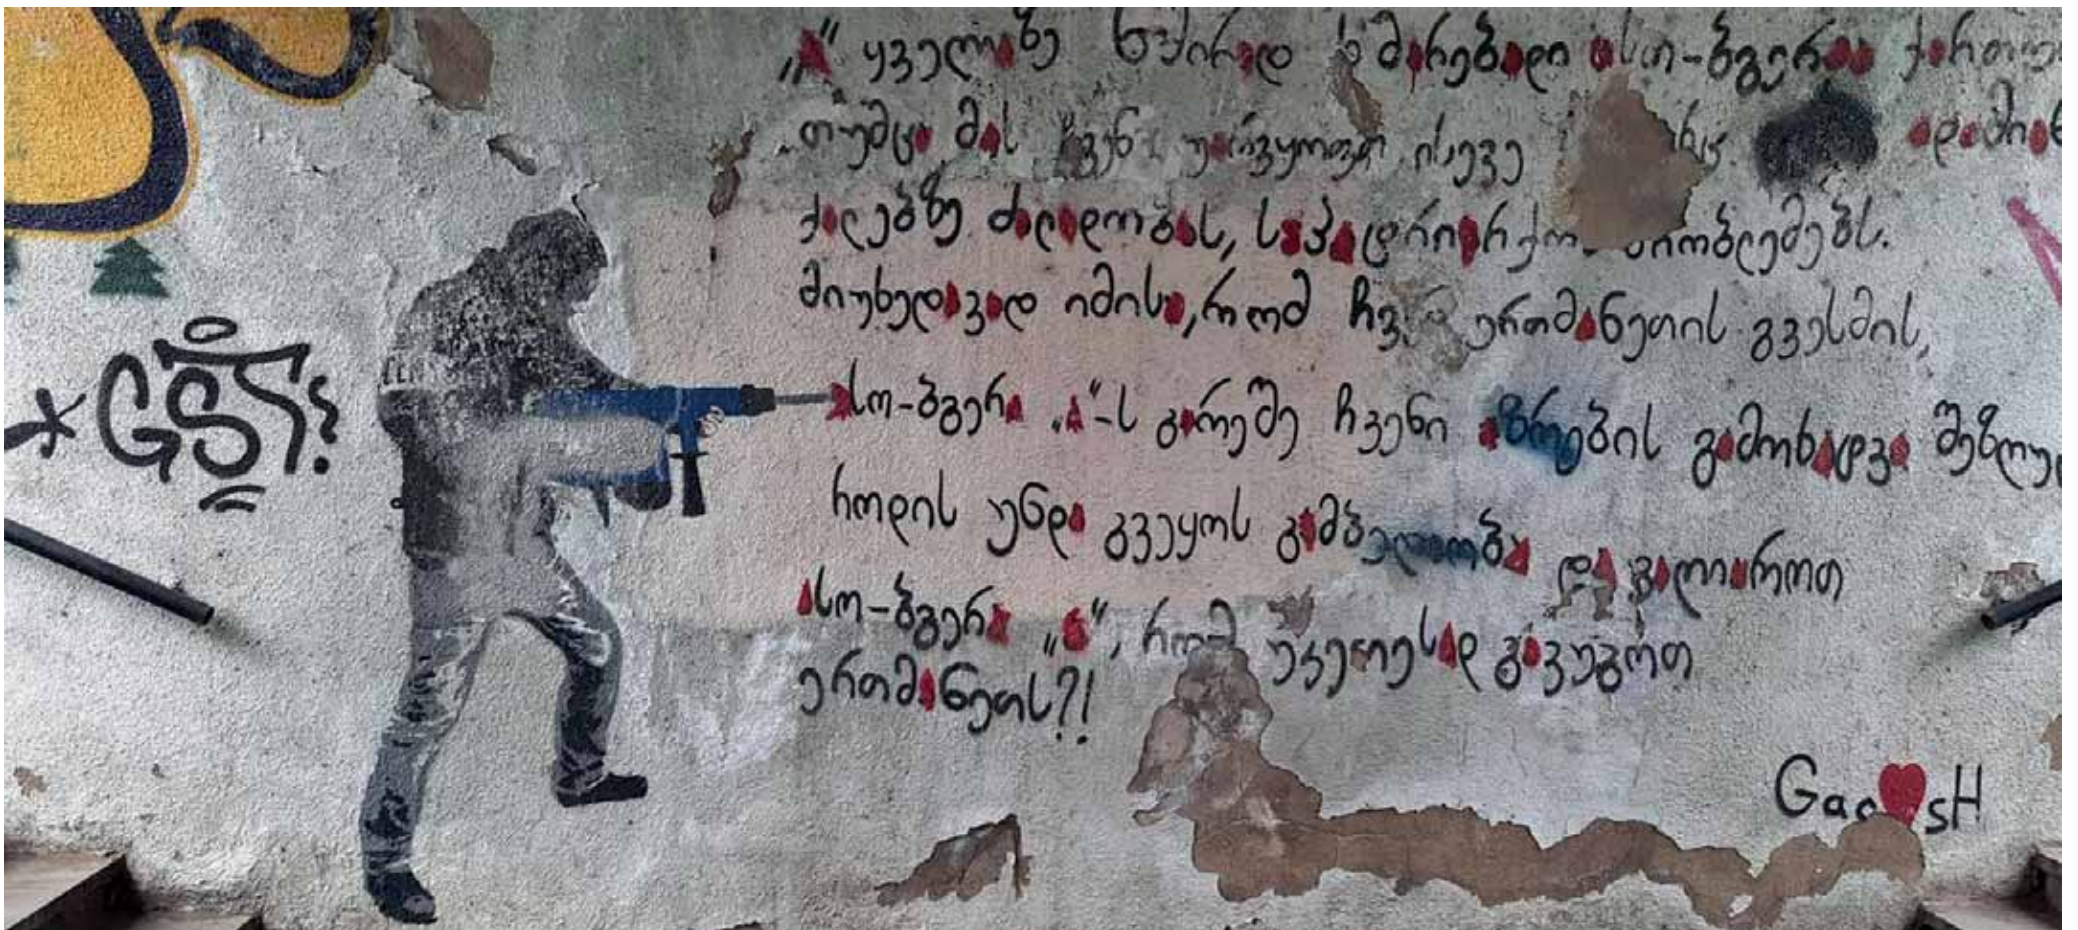 „ა“ ყველაზე ხშირად ხმარებადი ასო-ბგერაა
თუმცა მას ჩვენ უარვყოფთ ისევე
ქალებზე ძალადობას, საპატრიარქო პრობლემებს.
მიუხედავად იმისა, რომ ჩვენ ერთმანეთის გვესმის,
ასო-ბგერა „ა“-ს გარეშე ჩვენი აზრების გამოხატვა
როდის უნდა გვეყოს გამბედაობა და ვაღიაროთ
ასო-ბგერა „ა“, რომ უკეთესად გავუგოთ
ერთმანეთს?!
GST